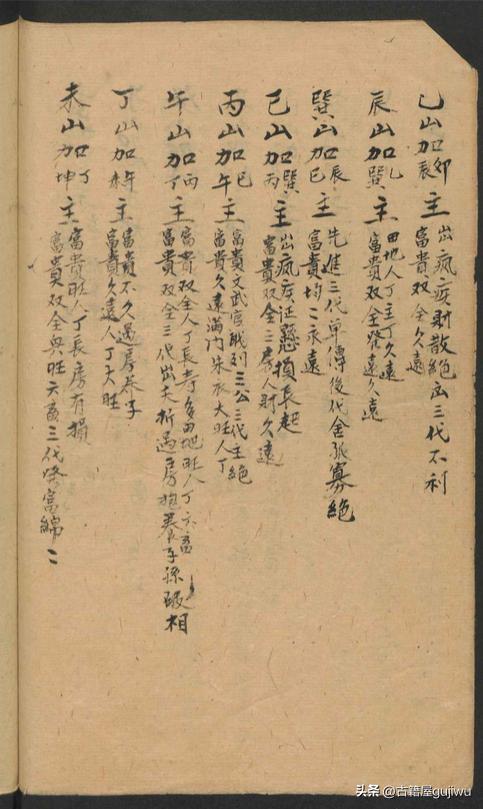 乙山加卯辰主出瘋疾財散絕出三代不利
富貴双全久遠
辰山加乙巽主田地人丁主丁久遠
富貴双全榮遠久遠
巽山加辰巳主先進三代單傳後代舍孤寡絕
富貴均二永遠
巳山加巽丙主出瘋疾症懸損長起
富貴双全二房人財久遠
丙山加巳午主富貴文武官職列三公三代主絕
富貴久遠滿门朱衣大旺人丁
午山加丙丁主富貴双全人丁長寿多田地旺人丁六畜
富貴双全三代出夭折過房抱養子孫破相
丁山加午未主富貴不久過房养子
富貴久遠人丁大旺
未山加丁坤主富貴旺人丁長房有損
富貴双全興旺六畜三代榮富綿二
头条 @古籍屋gujiwu